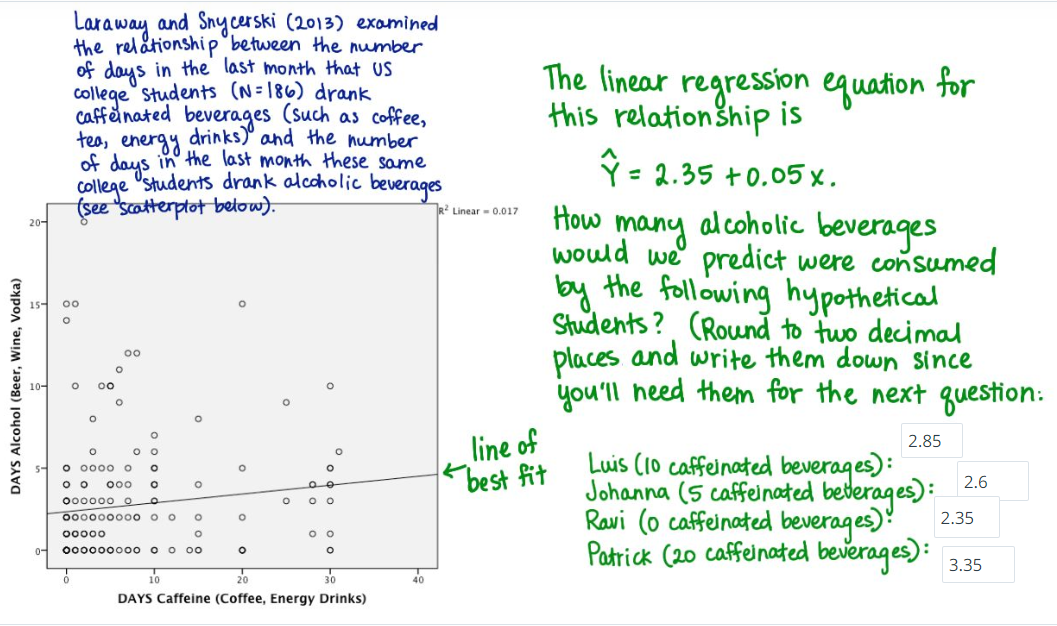 Laraway and Snycerski (2013) examined
the relationship between the number
of days in the last month that US
college students (N=186) drank
caffeinated beverages (such as coffee,
tea, energy drinks) and the number
of days in the last month these same
college students drank alcoholic beverages
(see scatterplot below).
R² Linear = 0.017
20
15
10
5
0
DAYS Alcohol (Beer, Wine, Vodka)
0 10 20 30 40
DAYS Caffeine (Coffee, Energy Drinks)
line of
best fit
The linear regression equation for
this relationship is
Ŷ = 2.35 + 0.05x.
How many alcoholic beverages
would we predict were consumed
by the following hypothetical
Students? (Round to two decimal
places and write them down since
you'll need them for the next question:
Luis (10 caffeinated beverages): 2.85
Johanna (5 caffeinated beverages): 2.6
Ravi (0 caffeinated beverages): 2.35
Patrick (20 caffeinated beverages): 3.35